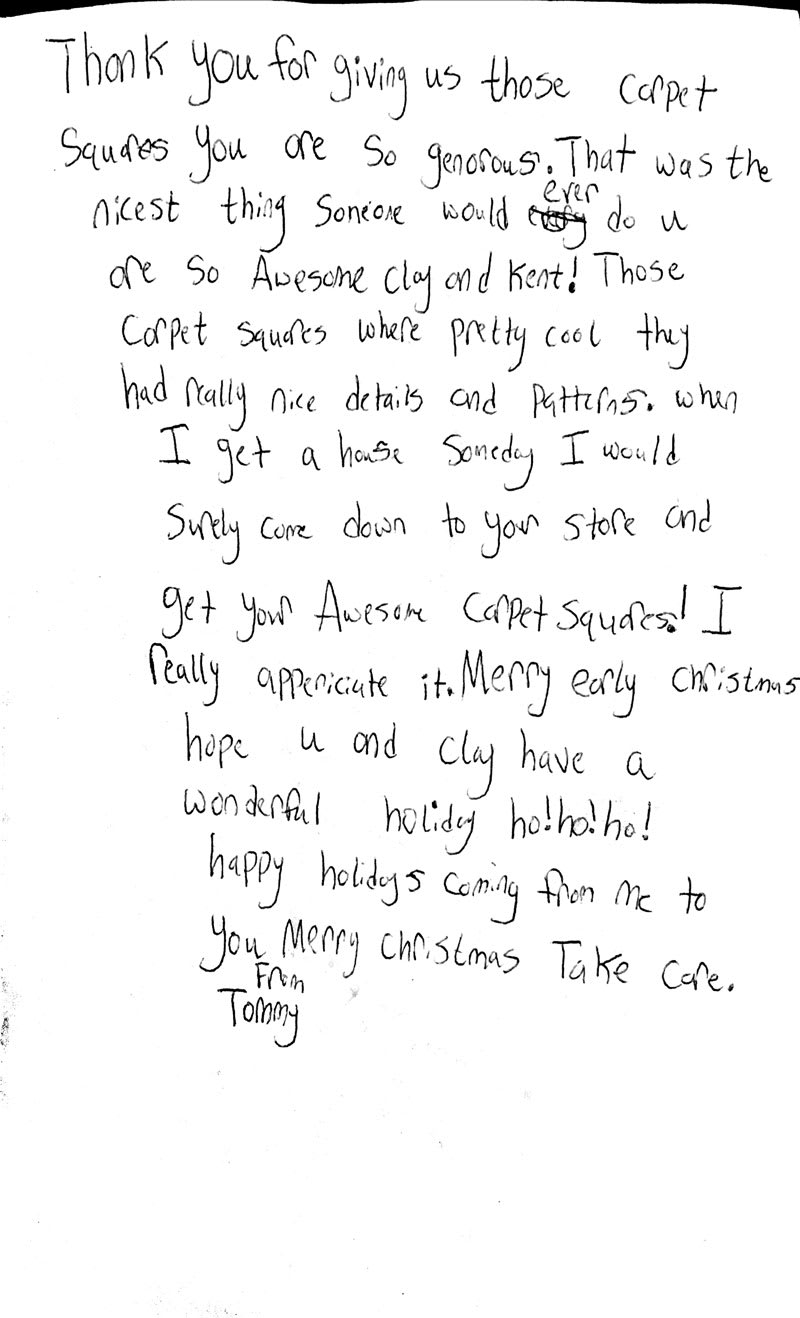 Thank you for giving us those carpet
squares you are so genorous. That was the
nicest thing someone would ever do u
are so Awesome Clay and Kent! Those
Carpet squares where pretty cool they
had really nice details and patterns. when
I get a house someday I would
surely come down to your store and
get your Awesome carpet squares! I
really appericiate it. Merry early christmas
hope u and Clay have a
wonderful holiday ho! ho! ho!
happy holidays coming from me to
you Merry christmas Take care.
From
Tommy